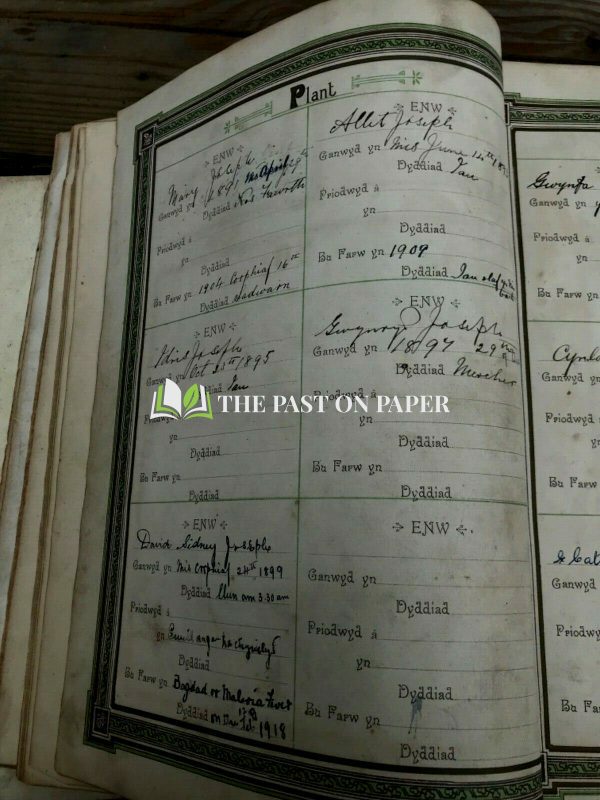 Plant
ENW
Mary Joseph
Ganwyd yn 1891 Mis April
Dyddiad
Priodwyd á
yn
Dyddiad
Bu Farw yn 1904 Gorphaf 16th
Dyddiad Sadwarn
ENW
Allet Joseph
Ganwyd yn Mis June 14th
Dyddiad Iau
Priodwyd á
yn
Dyddiad
Bu Farw yn 1909
Dyddiad Iau
ENW
Idris Joseph
Ganwyd yn Oct 1895
Dyddiad Iau
Priodwyd á
yn
Dyddiad
Bu Farw yn
Dyddiad
ENW
Gwynvor Joseph
Ganwyd yn 1897 29
Dyddiad Mercher
Priodwyd á
yn
Dyddiad
Bu Farw yn
Dyddiad
THE PAST ON PAPER
ENW
David Sidney Joseph
Ganwyd yn Mis Gorphaf 24th 1899
Dyddiad Llun am 3.30 am
Priodwyd á
yn
Dyddiad
Bu Farw yn Bagdad or Malaria Fever
Dyddiad on Feb 1918
ENW
Ganwyd yn
Dyddiad
Priodwyd á
yn
Dyddiad
Bu Farw yn
Dyddiad
Gwynfa
Ganwyd yn
Priodwyd á
yn
Bu Farw
Ganwyd yn
Priodwyd á
yn
Bu Farw
Ganwyd
Priodwyd
Bu Fa